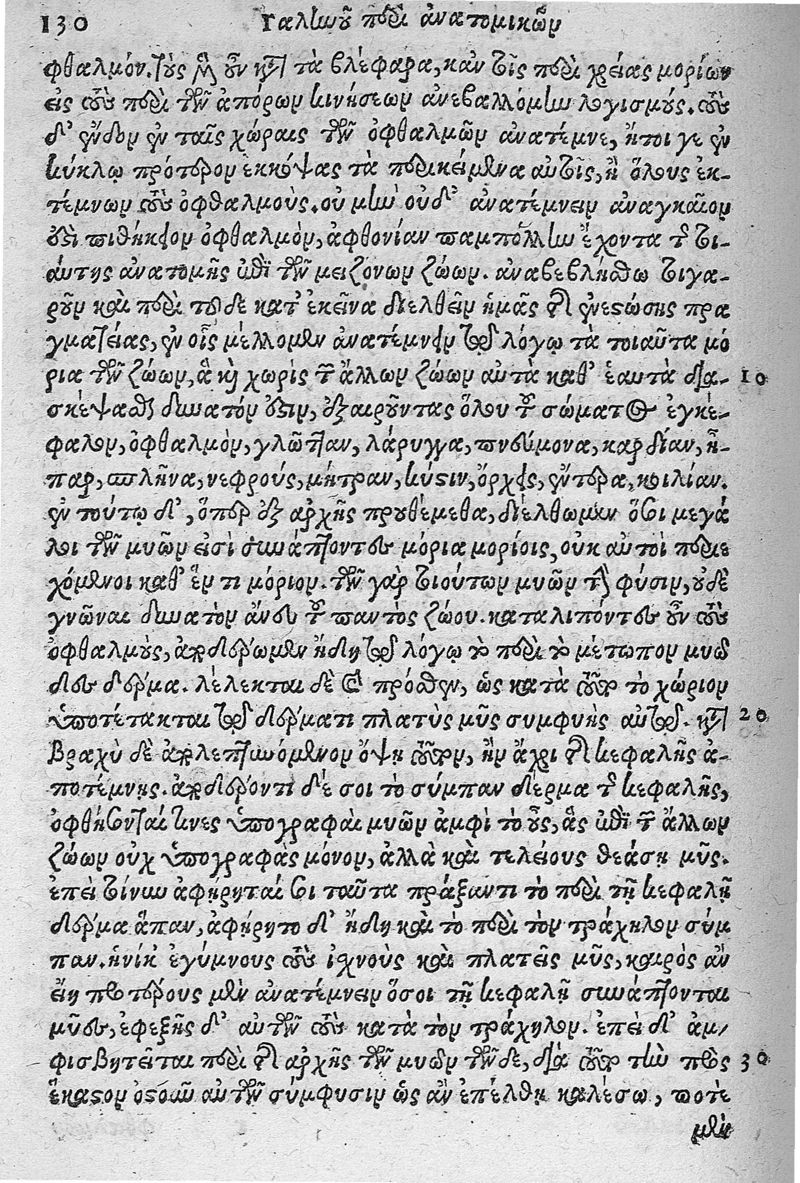 130 Γαλίωοῦ περὶ ἀνατομικῶν
φθαλμόν. τοὺς μὲν οὖν κατὰ τὰ βλέφαρα, κἀν τοῖς περὶ χρείας μορίων
εἰς τοὺς περὶ τῶν ἀπόρων κινήσεων ἀνεβαλλόμην λογισμούς. τοὺς
δ' ἔνδον ἐν ταῖς χώραις τῶν ὀφθαλμῶν ἀνατέμνε, ἤτοι γε ἐν
κύκλῳ πρότερον ἐκκόψας τὰ περικείμενα αὐτοῖς, ἢ ὅλους ἐκ-
τέμνων τοὺς ὀφθαλμούς. οὐ μὴν οὐδ' ἀνατέμνειν ἀναγκαῖον
ἐστὶ πιθήκειον ὀφθαλμὸν, ἀφθονίαν παμπόλλην ἔχοντα τῆς τοι-
αύτης ἀνατομῆς ἐπὶ τῶν μειζόνων ζώων. ἀναβεβλήσθω τοιγα-
ροῦν καὶ περὶ τοῦδε κατ' ἐκεῖνα διελθεῖν ἡμᾶς τῆς ἐνεστώσης πρα
γματείας, ἐν οἷς μέλλομεν ἀνατέμνειν τῷ λόγῳ τὰ τοιαῦτα μό
ρια τῶν ζώων, ἃ καὶ χωρὶς τῶν ἄλλων ζώων αὐτὰ καθ' ἑαυτὰ δια- 10
σκέψασθαι δυνατόν ἐστιν, ἐξαιροῦντας ὅλου τοῦ σώματος ἐγκέ-
φαλον, ὀφθαλμὸν, γλῶτταν, λάρυγγα, πνεύμονα, καρδίαν, ἧ-
παρ, σπλῆνα, νεφρούς, μήτραν, κύστιν, ὄρχεις, ἔντερα, κοιλίαν.
ἐν τούτῳ δ', ὅπερ ἐξ ἀρχῆς προὐθέμεθα, διέλθωμεν ὅσοι μεγά
λοι τῶν μυῶν εἰσὶ συνάπτοντες μόρια μορίοις, οὐκ αὐτοὶ περιε
χόμενοι καθ' ἕν τι μόριον. τῶν γὰρ τοιούτων μυῶν τὴν φύσιν, οὐδὲ
γνῶναι δυνατὸν ἄνευ τοῦ παντὸς ζώου. καταλιπόντες οὖν τοὺς
ὀφθαλμοὺς, ἀποδείρωμεν ἤδη τῷ λόγῳ τὸ περὶ τὸ μέτωπον μυῶ
δες δέρμα. λέλεκται δὲ καὶ πρόσθεν, ὡς κατὰ τοῦτο τὸ χωρίον
ὑποτέτακται τῷ δέρματι πλατὺς μῦς συμφυὴς αὐτῷ. κατὰ 20
βραχὺ δὲ ἀπολεπτυνόμενον ὄψῃ τοῦτον, ἢν ἄχρι τῆς κεφαλῆς ἀ-
ποτέμνῃς. ἀποδέροντι δέ σοι τὸ σύμπαν δέρμα τῆς κεφαλῆς,
ὀφθήσονταί τινες ὑπογραφαὶ μυῶν ἀμφὶ τὸ οὖς, ἃς ἐπὶ τῶν ἄλλων
ζώων οὐχ ὑπογραφὰς μόνον, ἀλλὰ καὶ τελείους θεάσῃ μῦς.
ἐπεὶ τοίνυν ἀφῄρηταί σοι ταῦτα πράξαντι τὸ περὶ τῇ κεφαλῇ
δέρμα ἅπαν, ἀφῄρητο δ' ἤδη καὶ τὸ περὶ τὸν τράχηλον σύμ
παν. ἡνίκ' ἐγύμνους τοὺς ἰχνοὺς καὶ πλατεῖς μῦς, καιρὸς ἂν
εἴη προτέρους μὲν ἀνατέμνειν ὅσοι τῇ κεφαλῇ συνάπτονται
μῦες, ἐφεξῆς δ' αὐτῶν τοὺς κατὰ τὸν τράχηλον. ἐπεὶ δ' ἀμ-
φισβητεῖται περὶ τῆς ἀρχῆς τῶν μυῶν τῶνδε, διὰ τοῦτο τὴν πρὸς 30
ἕκαστον ὀστοῦν αὐτῶν σύμφυσιν ὡς ἂν ἐπέλθῃ καλέσω, ποτὲ
μὲν